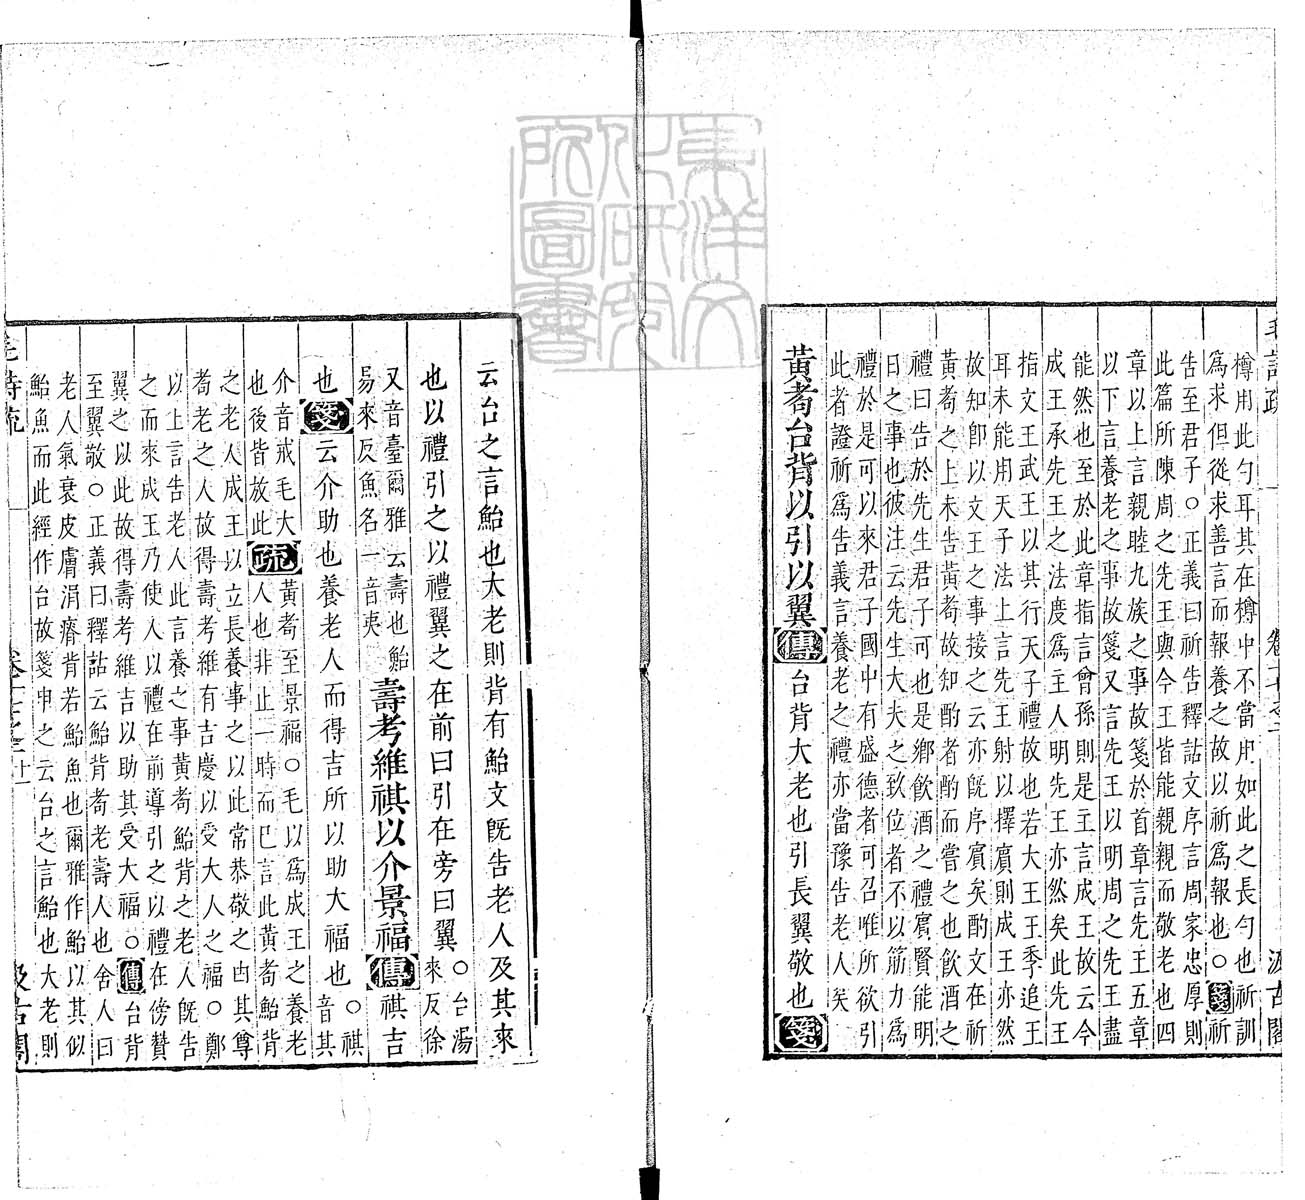 東洋文
化研究
所圖書
毛詩疏 卷十七之二 汲古閣
樽用此勺耳其在樽中不當用如此之長勺也祈訓
爲求但從求善言而報養之故以祈爲報也○箋祈
告至君子○正義曰祈告釋詁文序言周家忠厚則
此篇所陳周之先王與今王皆能親親而敬老也四
章以上言親睦九族之事故箋於首章言先王五章
以下言養老之事故箋又言先王以明周之先王盡
能然也至於此章指言曾孫則是主言成王故云今
成王承先王之法度爲主人明先王亦然矣此先王
指文王武王以其行天子禮故也若大王王季追王
耳未能用天子法上言先王射以擇賓則成王亦然
故知卽以文王之事接之云亦旣序賓矣酌文在祈
黃耇之上未告黃耇故知酌者酌而嘗之也飲酒之
禮曰告於先生君子可也是鄉飲酒之禮賓賢能明
日之事也彼注云先生大夫之致位者不以筋力爲
禮於是可以來君子國中有盛德者可召唯所欲引
此者證祈爲告義言養老之禮亦當豫告老人矣
黃耇台背以引以翼傳台背大老也引長翼敬也箋
云台之言鮐也大老則背有鮐文旣告老人及其來
也以禮引之以禮翼之在前曰引在旁曰翼
○台湯
來反徐
又音臺爾雅云壽也鮐
易來反魚名一音夷
壽考維祺以介景福傳祺吉
也箋云介助也養老人而得吉所以助大福也
○祺
音其
介音戒毛大
也後皆放此
疏
黃耇至景福○毛以爲成王之養老
人也非止一時而已言此黃耇鮐背
之老人成王以立長養事之以此常恭敬之由其尊
耇老之人故得壽考維有吉慶以受大人之福○鄭
以上言告老人此言養之事黃耇鮐背之老人旣告
之而來成王乃使人以禮在前導引之以禮在傍贊
翼之以此故得壽考維吉以助其受大福○傳台背
至翼敬○正義曰釋詁云鮐背耇老壽人也舍人曰
老人氣衰皮膚涓瘠背若鮐魚也爾雅作鮐以其似
鮐魚而此經作台故箋申之云台之言鮐也大老則
毛詩疏 卷十七之二 十一 汲古閣